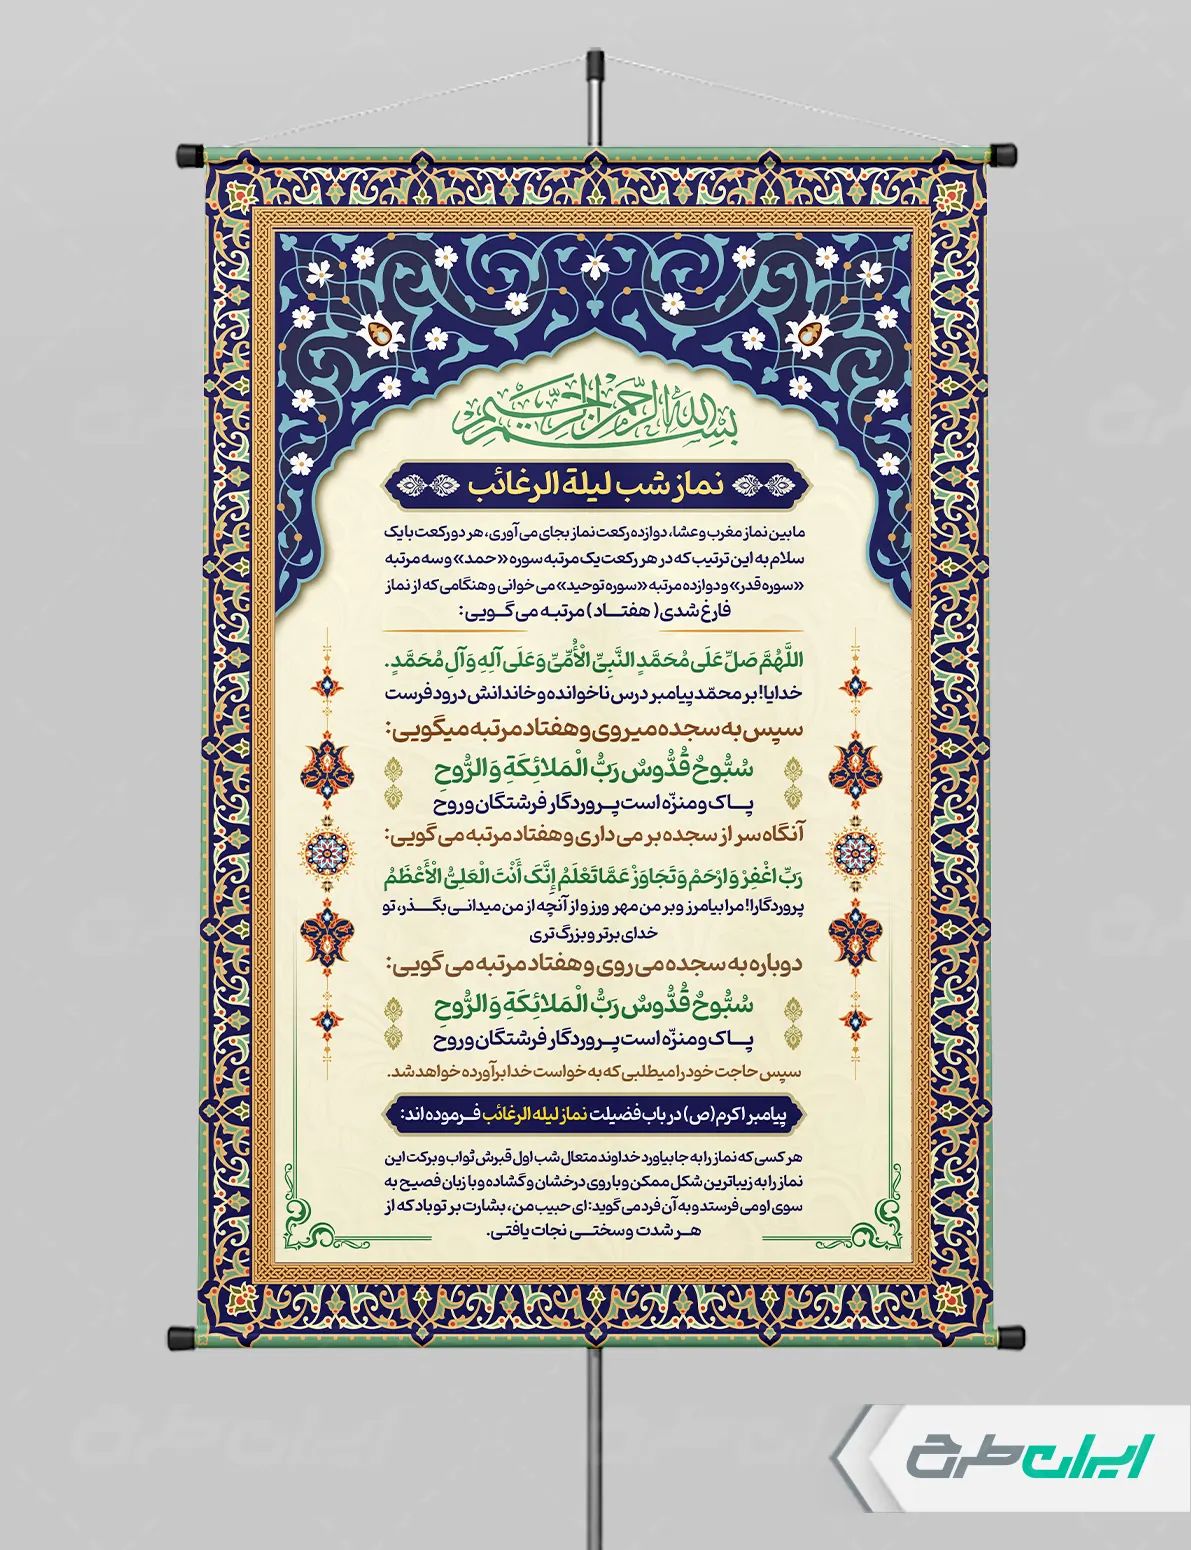 بسم الله الرحمن الرحیم
نماز شب لیلة الرغائب
مابین نماز مغرب و عشا، دوازده رکعت نماز بجای می‌آوری، هر دو رکعت با یک
سلام به این ترتیب که در هر رکعت یک مرتبه سوره «حمد» و سه مرتبه
«سوره قدر» و دوازده مرتبه «سوره توحید» می‌خوانی و هنگامی که از نماز
فارغ شدی (هفتــاد) مرتبـه می‌گـویی:
اللَّهُمَّ صَلِّ عَلَى مُحَمَّدٍ النَّبِيِّ الْأُمِّيِّ وَعَلَى آلِهِ وَآلِ مُحَمَّدٍ.
خدایا! بر محمّد پیامبر درس ناخوانده و خاندانش درود فرست
سپس به سجده میروی و هفتاد مرتبه میگویی:
سُبُّوحٌ قُدُّوسٌ رَبُّ الْمَلائِکَةِ وَالرُّوحِ
پــاک و منزّه است پــروردگار فرشتگان و روح
آنگاه سر از سجده بر می‌داری و هفتاد مرتبه می‌گویی:
رَبِّ اغْفِرْ وَارْحَمْ وَتَجَاوَزْ عَمَّا تَعْلَمُ إِنَّکَ أَنْتَ الْعَلِیُّ الْأَعْظَمُ
پروردگارا! مرا بیامرز و بر من مهر ورز و از آنچه از من میدانـی بگـــذر، تو
خدای برتر و بزرگ تری
دوباره به سجده می‌روی و هفتاد مرتبه می‌گویی:
سُبُّوحٌ قُدُّوسٌ رَبُّ الْمَلائِکَةِ وَالرُّوحِ
پــاک و منزّه است پــروردگار فرشتگان و روح
سپس حاجت خود را میطلبی که به خواست خدا برآورده خواهد شد.
پیامبر اکرم(ص) در باب فضیلت نماز لیله الرغائب فـرموده اند:
هر کسی که نماز را به جا بیاورد خداوند متعال شب اول قبرش ثواب و برکت این
نماز را به زیباترین شکل ممکن و با روی درخشان و گشاده و با زبان فصیح به
سوی او می فرستد و به آن فرد می گوید: ای حبیب من، بشارت بر تو باد که از
هــر شدت و سختــی نجات یافتی.
ایران طرح